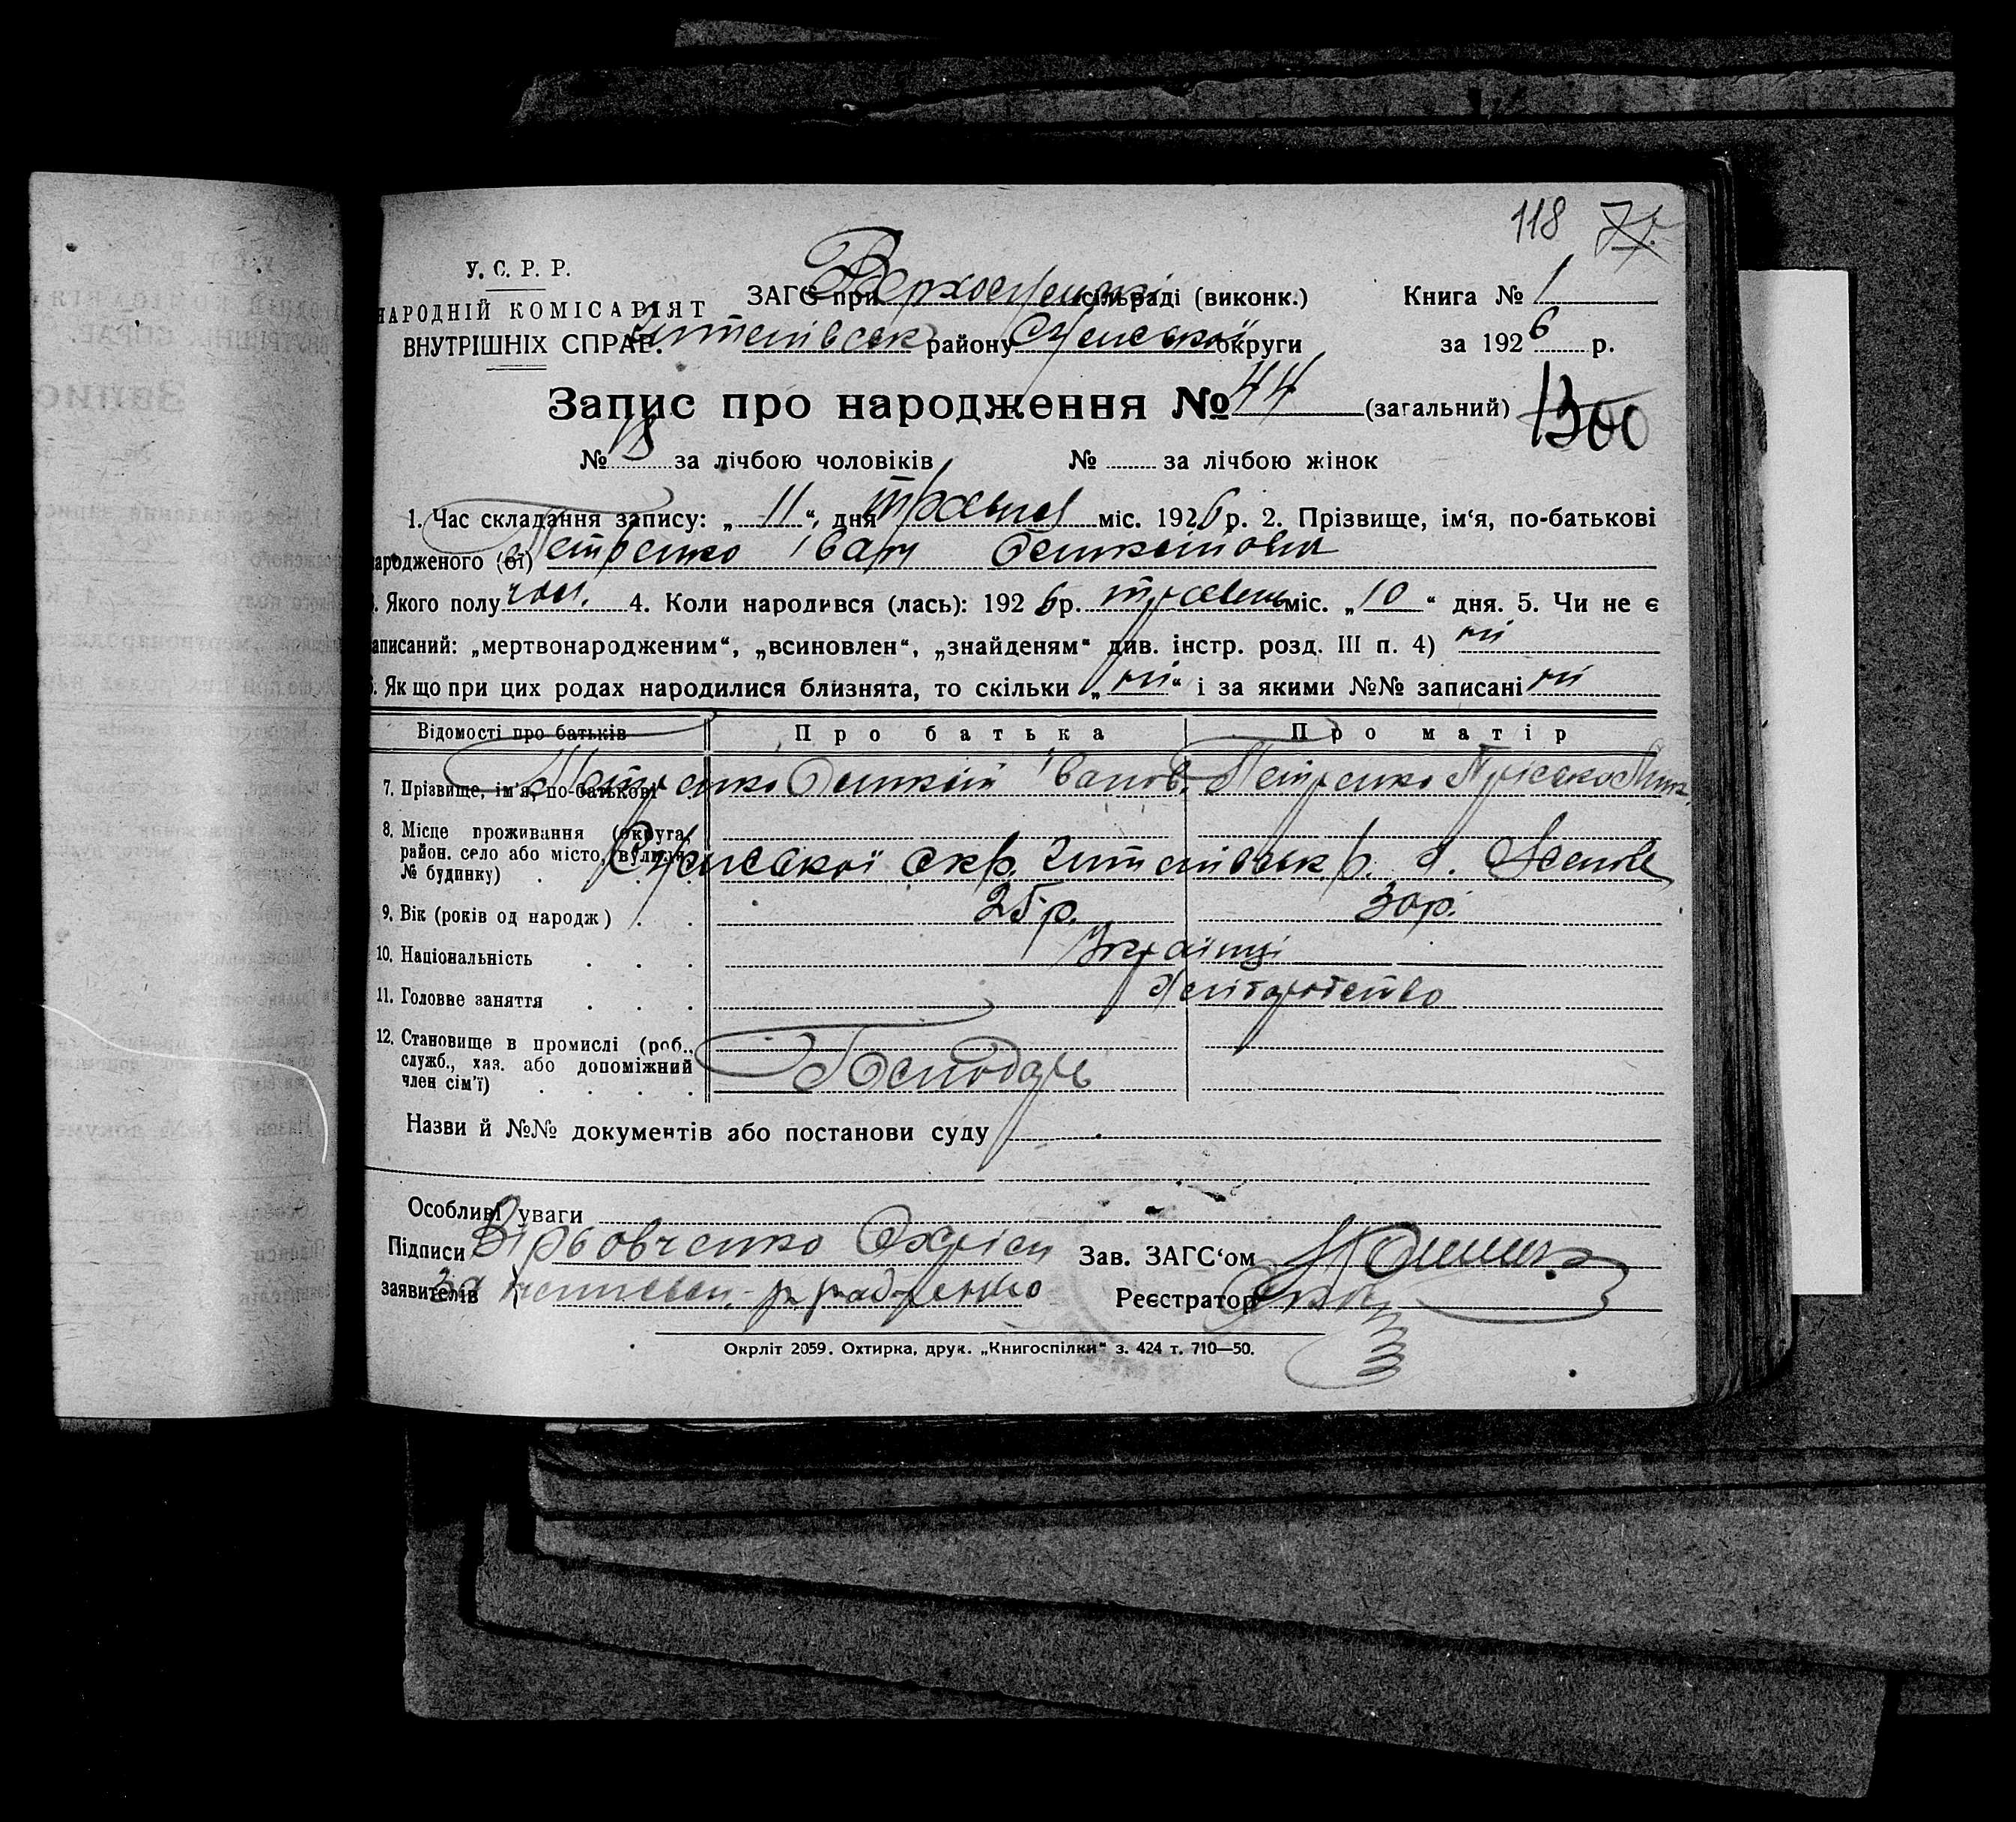 118
У. С. Р. Р.
НАРОДНІЙ КОМІСАРІЯТ
ВНУТРІШНІХ СПРАВ.
ЗАГС при сільраді (виконк.)
району Сумської округи
Книга № 1
за 1926 р.
Запис про народження № 44 (загальний)
1300
№ 18 за лічбою чоловіків № за лічбою жінок
1. Час складання запису: „ 11 “, дня травня міс. 1926 р. 2. Прізвище, ім‘я, по-батькові
народженого (ої) Петренко Іван
Якого полу чол. 4. Коли народився (лась): 1926 р. травень міс. „ 10 “ дня. 5. Чи не є
записаний: „мертвонародженим“, „всиновлен“, „знайденям“ див. інстр. розд. III п. 4) ні
6. Якщо при цих родах народилися близнята, то скільки „ ні “ і за якими №№ записані ні
Відомості про батьків Про батька Про матір
7. Прізвище, ім'я, по-батькові Петренко Іванов. Петренко
8. Місце проживання (округа,
район, село або місто, вулиця,
№ будинку) Сумської окр. р.
9. Вік (років од народж) 25 р. 30 р.
10. Національність Українці
11. Головне заняття Хліборобство
12. Становище в промислі (роб.,
служб., хаз. або допоміжний
член сім'ї) Господарь
Назви й №№ документів або постанови суду
Особливі уваги
Підписи
заявителів За
Зав. ЗАГС‘ом
Реєстратор
Окрліт 2059. Охтирка, друк. „Книгоспілки“ з. 424 т. 710—50.